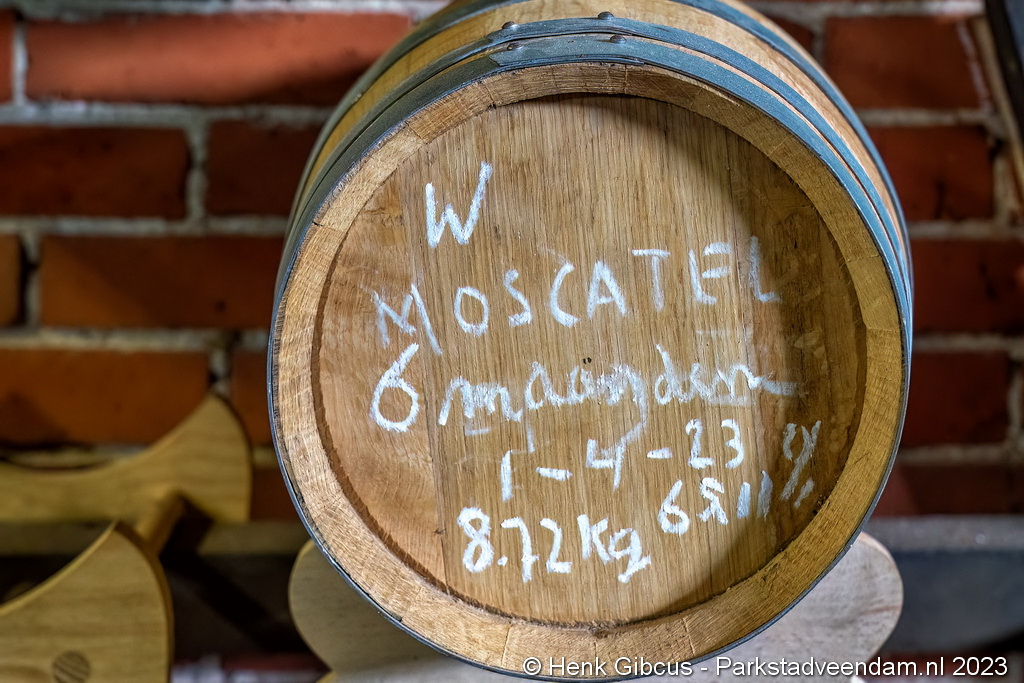 W
MOSCATEL
6 maanden
1-4-23
8.72 Kg
© Henk Gibcus - Parkstadveendam.nl 2023